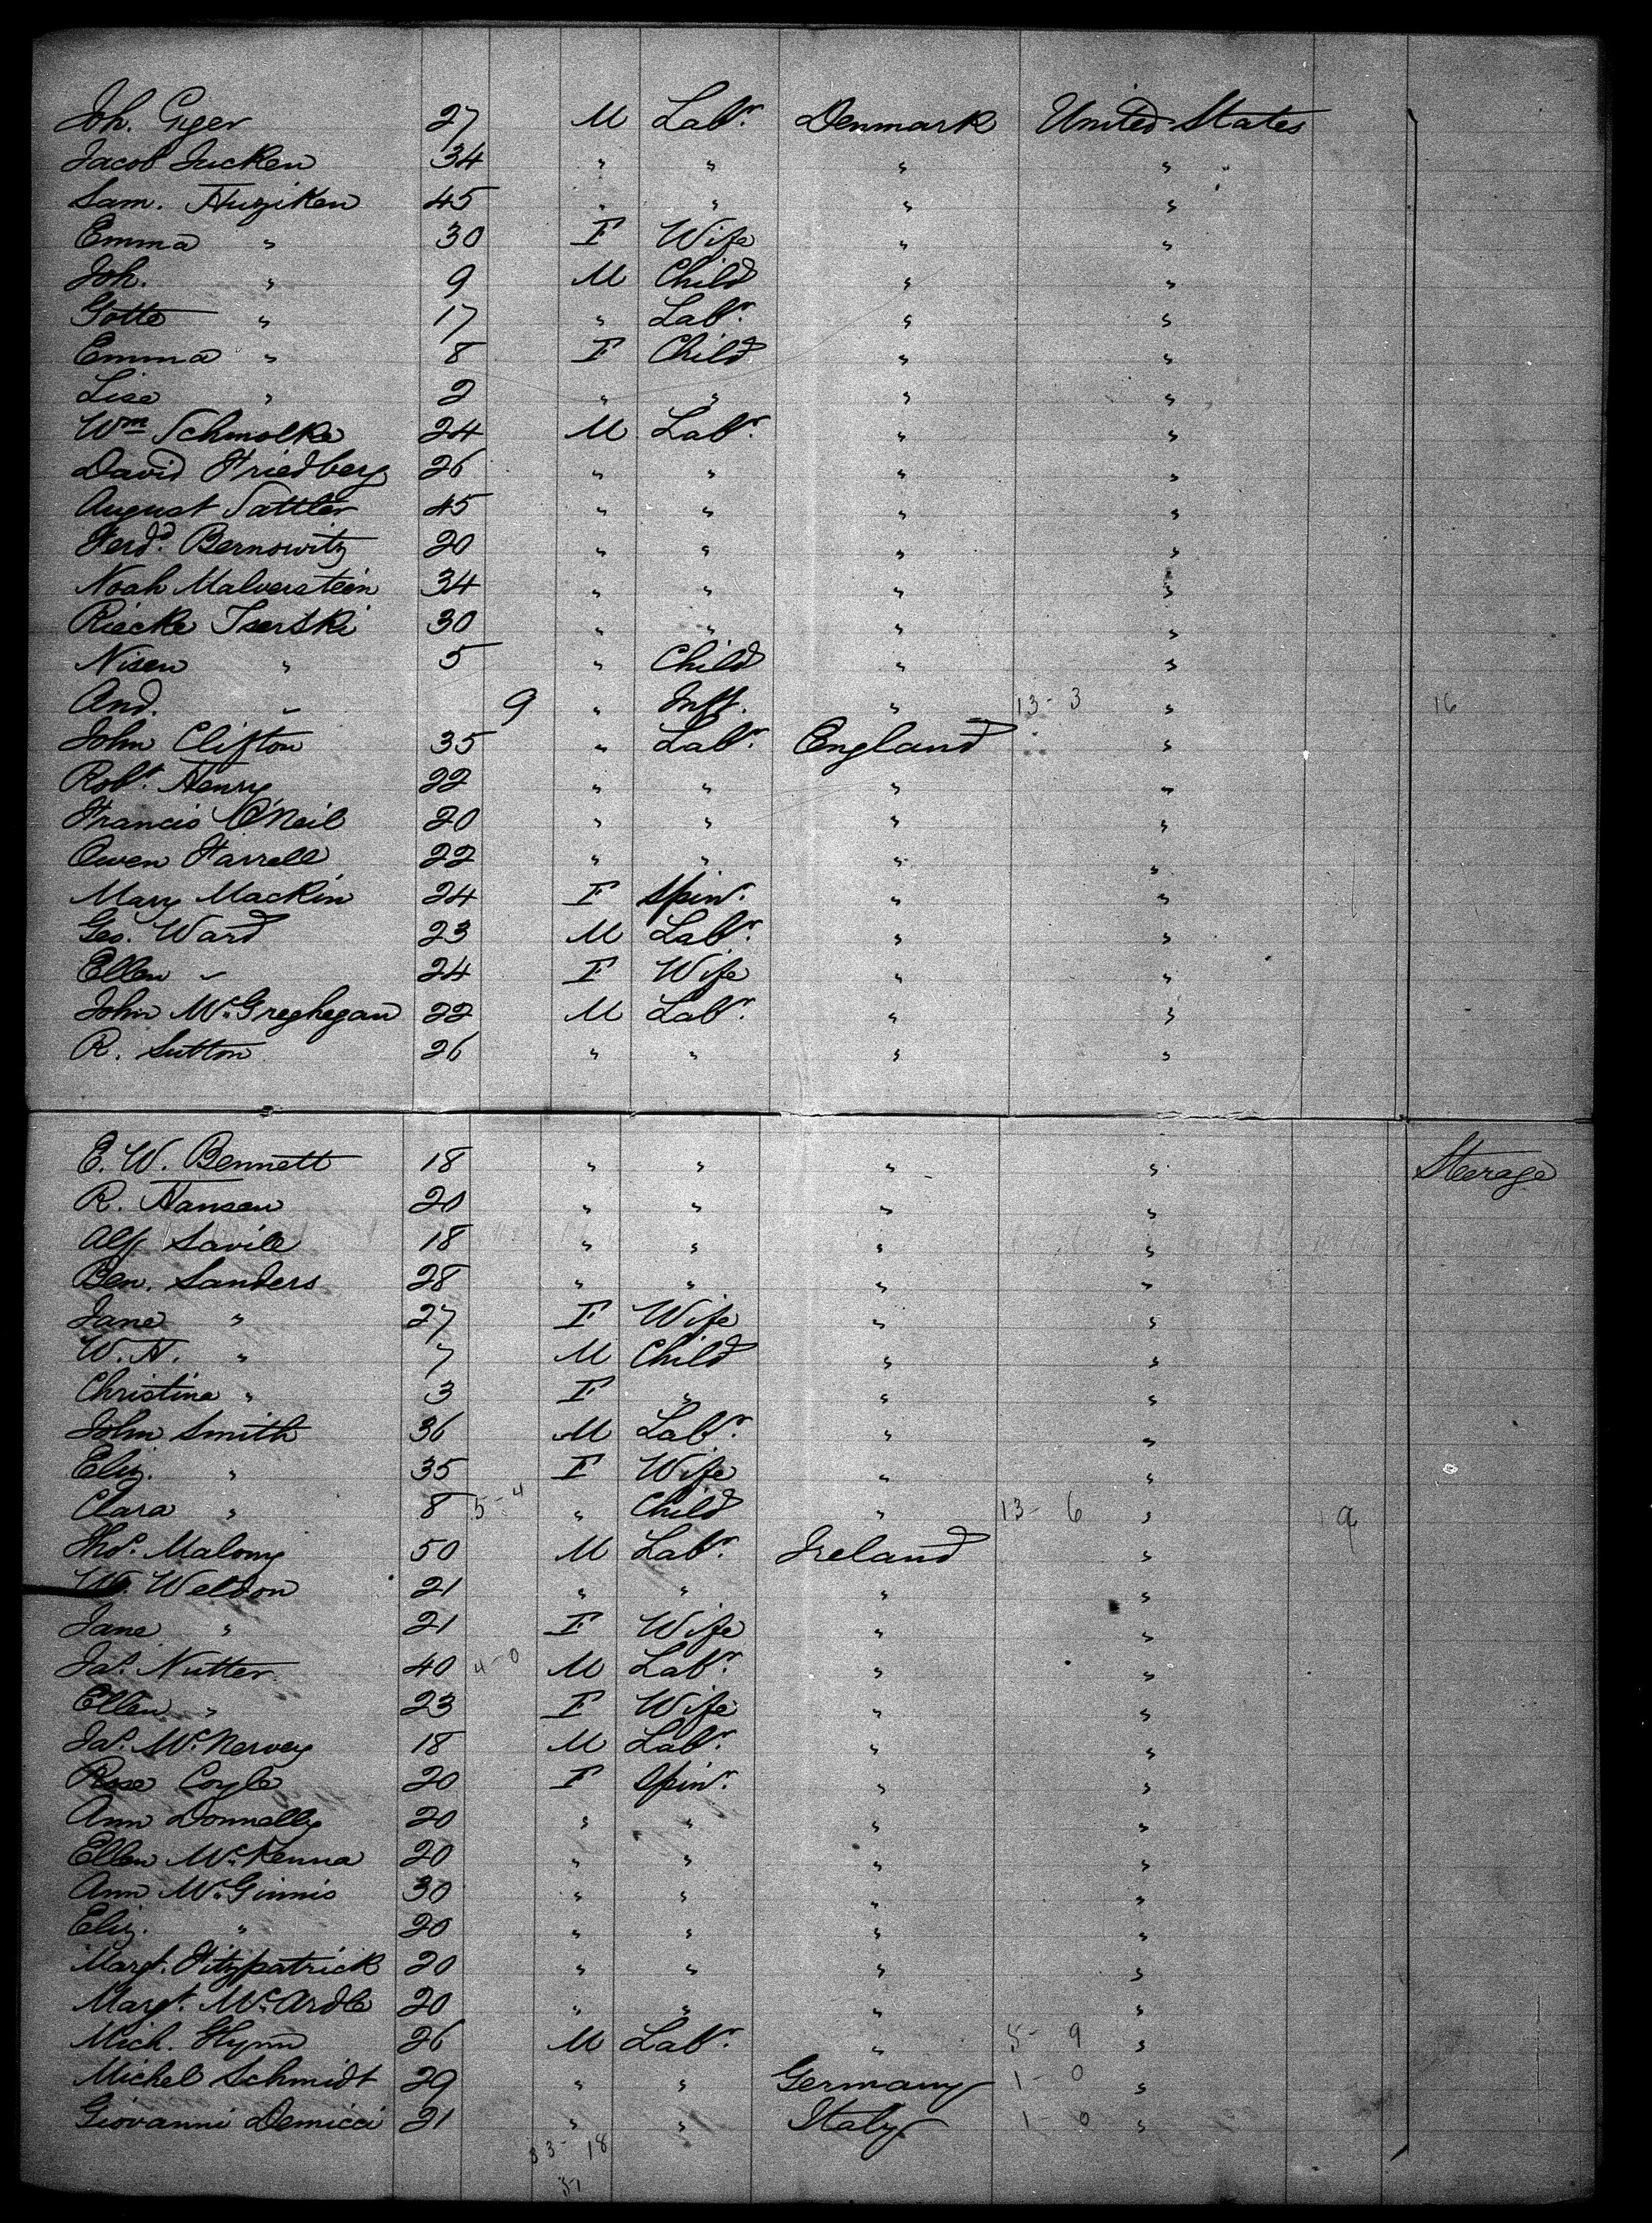 Joh. Gyger 27 M Labr. Denmark United States
Jacob Jucken 34 " " " "
Sam. Huziken 45 " " " "
Emma " 30 F Wife " "
Joh. " 9 M Child " "
Gotte " 17 " Labr. " "
Emma " 8 F Child " "
Lise " 2 " " " "
Wm Schmolke 24 M Labr. " "
David Friedberg 26 " " " "
August Sattler 45 " " " "
Ferd. Bernowitz 20 " " " "
Noah Malverstein 34 " " " "
Riecke Iserski 30 " " " "
Nisen " 5 " Child " "
And. " 9 " Inft. " 13-3 " 16
John Clifton 35 " Labr. England "
Robt. Henry 22 " " " "
Francis O'Neil 20 " " " "
Owen Farrell 22 " " " "
Mary Mackin 24 F Spinr. " "
Geo. Ward 23 M Labr. " "
Ellen " 24 F Wife " "
John McGreghegan 22 M Labr. " "
R. Sutton 26 " " " "
E. W. Bennett 18 " " " " Steerage
R. Hansen 20 " " " "
Alf Savill 18 " " " "
Ben. Sanders 28 " " " "
Jane " 27 F Wife " "
W. H. " 7 M Child " "
Christina " 3 F " " "
John Smith 36 M Labr. " "
Eliz. " 35 F Wife " "
Clara " 8 5-4 " Child " 13-6 " 9
Thos. Malony 50 M Labr. Ireland "
W. Weldon 21 " " " "
Jane " 21 F Wife " "
Jas. Nutter 40 4-0 M Labr. " "
Ellen " 23 F Wife " "
Jas. McNervey 18 M Labr. " "
Rose Coyle 20 F Spinr. " "
Ann Donnelly 20 " " " "
Ellen McKenna 20 " " " "
Ann McGinnis 30 " " " "
Eliz. " 20 " " " "
Margt. Fitzpatrick 20 " " " "
Margt. McArdle 20 " " " "
Mich. Flynn 26 M Labr. " 5-9 "
Michel Schmidt 29 " " Germany 1-0 "
Giovanni Demicci 21 " " Italy 1-0 "
33-18
51